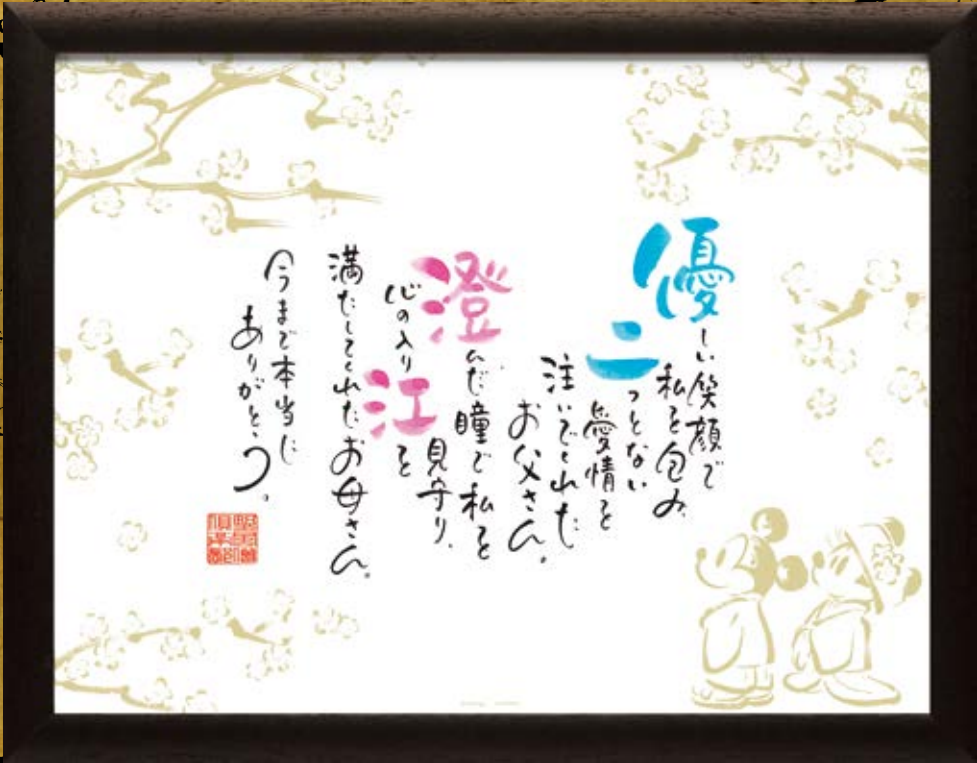 優しい笑顔で
私を包み
二つとない
愛情を
注いでくれた
お父さん。
澄んだ瞳で私を
見守り、
心の入り江を
満たしてくれたお母さん。
今まで本当に
ありがとう。